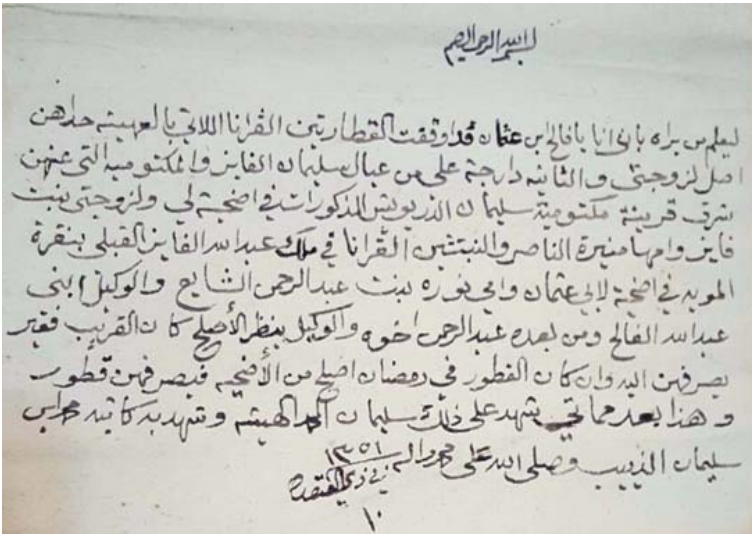 بسم الله الرحمن الرحيم
ليعلم من يراه باني انا يا فالح ابن عثمان قد اوقفت القطارتين القرانا اللاتي بالعهيته حداهن
اصل لزوجتي والثانيه دارجة علي من عيال سليمان الفايز والمكتومية التي عنهن
شرق قرينة مكتومية سليمان الدرويش المذكورات في اضحية لي ولزوجتي بنت
فايز وامها منيرة الناصر والنبتتين القرانا في ملك عبدالله الفايز القبلي بنقرة
المويه في اضحية لابي عثمان وامي نوره بنت عبدالرحمن الشايع والوكيل ابني
عبدالله الفالح ومن بعده عبدالرحمن اخوه والوكيل ينظر الأصلح كان القريب فقير
يصرفهن اليه وان كان الفطور في رمضان اصلح من الأضحيه فيصرفهن فطور
وهذا بعد مماتي يشهد على ذلك سليمان الهيشه وشهد به كاتبه محمد ابن
سليمان الذييب وصلى الله على محمد واله ١٣٥١
في ذي القعدة
١٠